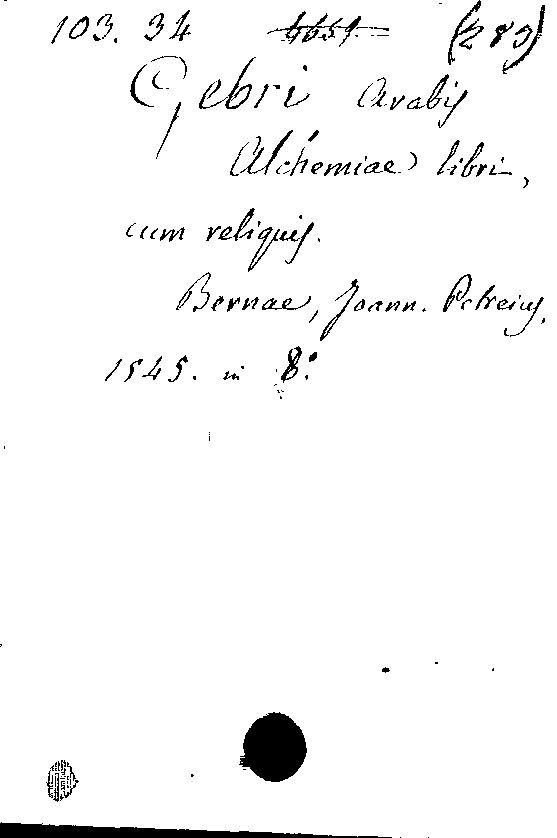 103. 34 4651. (283)
Gebri Arabis
Alchemiae libri,
cum reliquis.
Bernae, Joann. Petreius,
1545. in 8°.